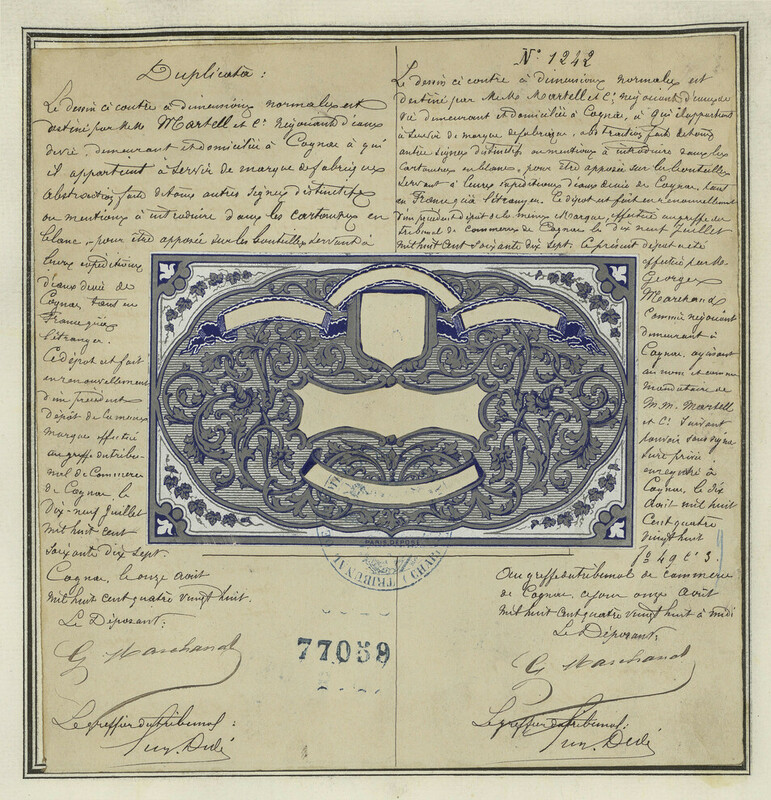 Duplicata :
Le dessin ci contre à dimensions normales est
destiné par MM. Martell et Cie négociant d'eaux
de vie, demeurant et domiciliée à Cognac à qui
il appartient à servir de marque de fabrique
abstraction faite de tous autres signes distinctifs
ou mentions à introduire dans les cartouches en
blanc, pour être apposée sur les bouteilles servant à
leurs expéditions
d'eaux de vie de
Cognac, tant en
France qu'à
l'étranger.
Ce dépôt est fait
en renouvellement
d'un précédent
dépôt de la même
marque effectué
au greffe du tribu-
nal de Commerce
de Cognac, le
Dix-neuf Juillet
mil huit cent
soixante dix sept.
Cognac, le onze août
mil huit cent quatre vingt huit.
Le Déposant :
G Marchand
Le greffier du tribunal :
N° 1242
Le dessin ci contre à dimensions normales est
destiné par MM. Martell et Cie négociant d'eaux de
vie demeurant et domiciliée à Cognac, à qui il appartient
à servir de marque de fabrique, abstraction faite de tous
autres signes distinctifs ou mentions à introduire dans les
cartouches en blanc, pour être apposée sur les bouteilles
servant à leurs expéditions d'eaux de vie de Cognac, tant
en France qu'à l'étranger. Ce dépôt est fait en renouvellement
d'un précédent dépôt de la même Marque, effectué au greffe du
tribunal de commerce de Cognac le dix neuf Juillet
mil huit cent soixante dix sept. Ce présent dépôt a été
effectué par Mr
Georges
Marchand
Commis négociant
demeurant à
Cognac, agissant
au nom et comme
mandataire de
M.M. Martell
et Cie suivant
pouvoir sous signa
ture privée
enregistré à
Cognac, le six
août mil huit
Cent quatre
vingt huit
fo 49 co 3.
Au greffe du tribunal de commerce
de Cognac, ce jour onze Août
mil huit cent quatre vingt huit à midi
Le Déposant :
G Marchand
Le greffier du tribunal :
PARIS DÉPOSÉ
TRIBUNAL
77059